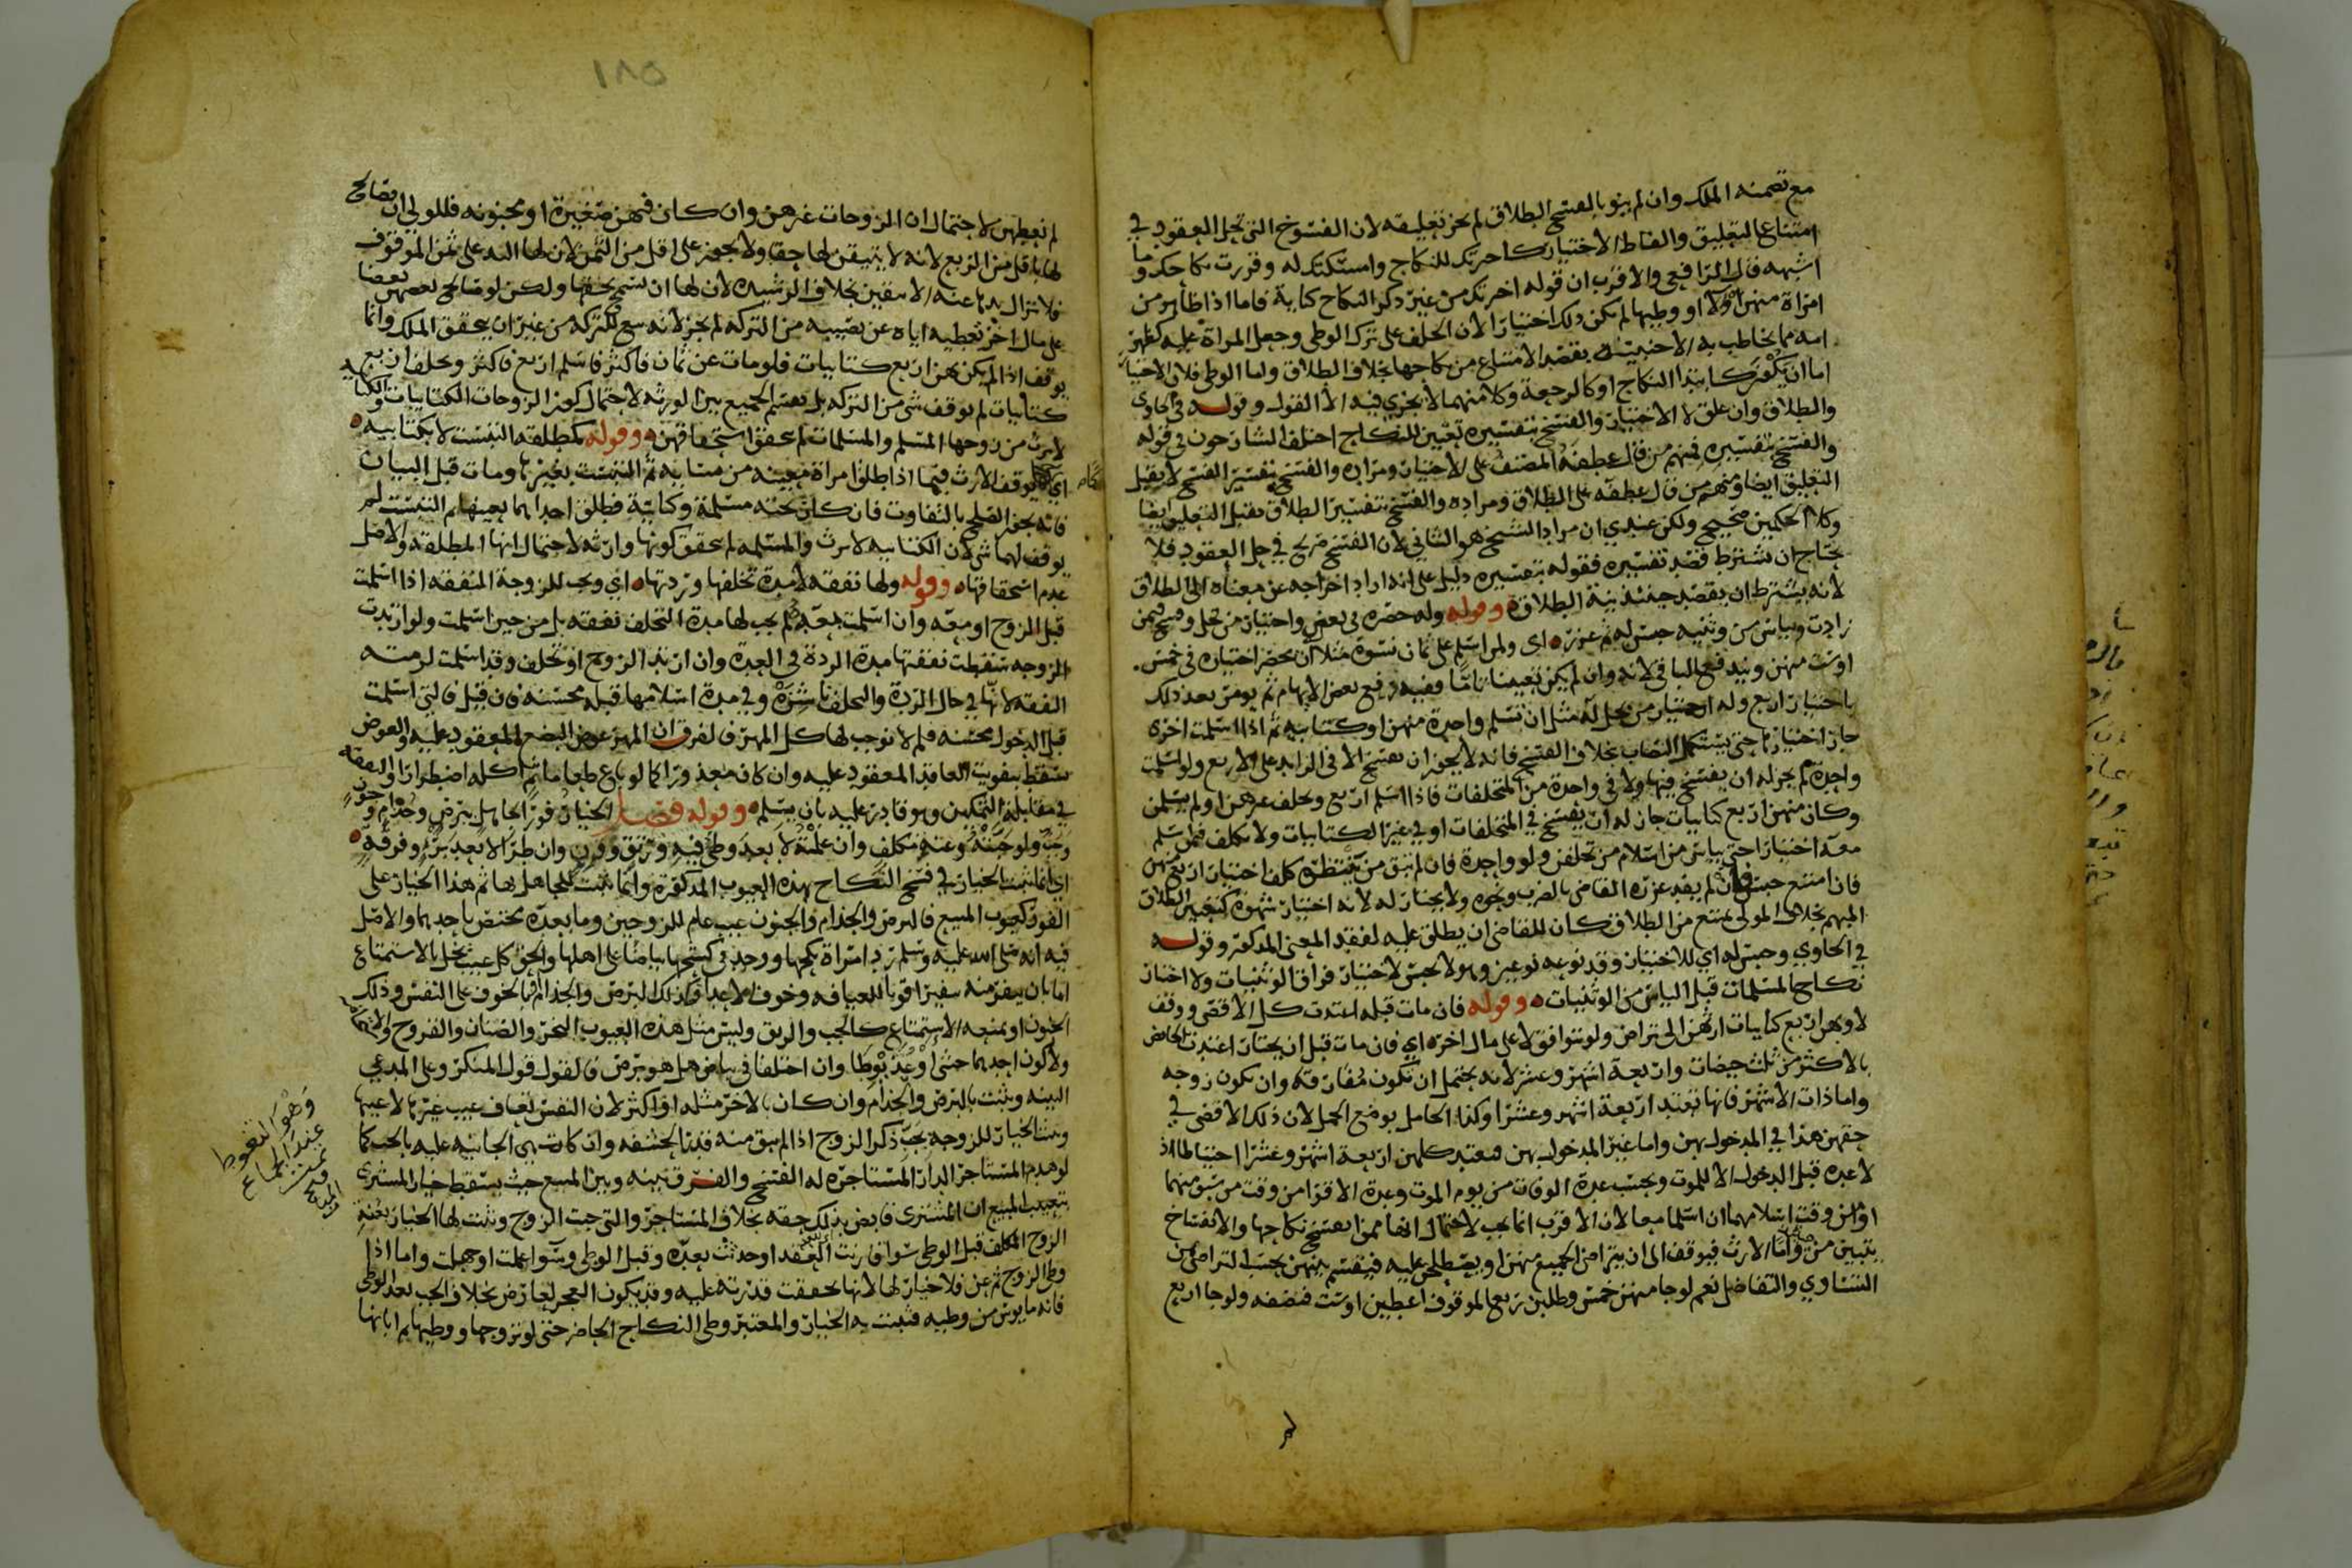 مع تضمنه الملك وان لم ينو بالفسخ الطلاق لم يجز تعليقه لان الفسوخ التي تحل العقود في
امتناع التعليق والفاظ الاختيار كاخترتك للنكاح وامسكتك له وقررت نكاحك وما
اشبهه قال الرافعي والاقرب ان قوله اخترتك من غير ذكر النكاح كناية فاما اذا ظاهر من
امراة منهن اولا او وطيها لم يكن ذلك اختيارا لان الحلف على ترك الوطي وجعل المراة عليه كظهر
امه مما يخاطب به الاجنبية بقصد الامتناع من نكاحها بخلاف الطلاق واما الوطي فلان الاختيار
اما ان يكون كابتدا النكاح او كالرجعة وكلا منهما لا يجزي فيه الا القول وقوله في الحاوي
والطلاق وان علق لا الاختيار والفسخ بتفسيره تعيين للنكاح اختلف الشارحون في قوله
والفسخ بتفسيره فمنهم من قال عطفه المصنف على الاختيار ومراده والفسخ بتفسير الفسخ لا يقبل
التعليق ايضا ومنهم من قال عطفه على الطلاق ومراده والفسخ بتفسير الطلاق يقبل التعليق ايضا
وكلا الحكمين صحيح ولكن عندي ان مراد الشيخ هو الثاني لان الفسخ صريح في حل العقود فلا
يحتاج ان يشترط قصد تفسيره فقوله بتفسيره دليل على انه اراد اخراجه عن معناه الى الطلاق
لانه يشترط ان يقصد حينئذ بنية الطلاق وقوله وله حصره في بعض واختيار من تحل وفسخ فيمن
زادت وبياس من وثنيه حبس له ثم عزره اي ولمن اسلم على ثمان نسوة مثلا ان يحصر اختياره في خمس
او ست منهن ويندفع الباقي لانه وان لم يكن تعيينا تاما ففيه رفع بعض الابهام ثم يومر بعد ذلك
باختيار اربع وله اختيار من تحل له مثل ان تسلم واحدة منهن او كتابيه ثم اذا اسلمت اخرى
جاز اختيارها حتى يستكمل النصاب بخلاف الفسخ فانه لا يجوز ان يفسخ الا في الزايد على الاربع ولو اسلمت
واحدة لم يجز له ان يفسخ فيها ولا في واحدة من المتخلفات فاذا اسلم اربع وتخلف غيرهن او لم يسلمن
وكان منهن اربع كتابيات جاز له ان يفسخ في المتخلفات او في غير الكتابيات ولا يكلف فيمن اسلم
معه اختيارا حتى يياس من اسلام من تخلفن ولو واحدة فان لم يبق من ينتظره كلف اختيار اربع منهن
فان امتنع حبس فان لم يفد عزره القاضي بالضرب ونحوه ولا يختار له لانه اختيار شهوة كتخيير الطلاق
المبهم بخلاف المولي يمتنع من الطلاق كان للقاضي ان يطلق عليه لفقد المعنى المذكور وقوله
في الحاوي وحبس له اي للاختيار وقد نوعه نوعين وهو لا يحبس لاختيار فراق الوثنيات ولا اختار
نكاح المسلمات قبل الياس من الوثنيات وقوله فان مات قبله اعتدت كل الاقصى ووقف
لا وبهن اربع كتابيات ارثهن الى تراض ولو بتوافق لا على مال اخر اي فان مات قبل ان يختار اعتدت الحايض
بالاكثر من ثلث حيضات واربعة اشهر وعشر لانه يحتمل ان تكون مفارقه وان تكون زوجه
واما ذات الاشهر فانها تعتد اربعة اشهر وعشرا وكذا الحامل بوضع الحمل لان ذلك الاقصى في
حقهن هذا في المدخول بهن واما غير المدخول بهن فيعتد كلهن اربعة اشهر وعشرا احتياطا اذ
لا عدة قبل الدخول الا للموت وتحسب عدة الوفاة من يوم الموت وعدة الاقرا من وقت من سبق منهما
او من وقت اسلامهما ان اسلما معا لان الاقرب انما يجب لاحتمال انها ممن انفسخ نكاحها والانفساخ
يتبين من واما الارث فيوقف الى ان يتراض الجميع منهن او يصطلحن عليه فيقسم بينهن بحسب التراضي من
التساوي والتفاضل نعم لو جا منهن خمس وطلبن ربع الموقوف اعطين او ست فنصفه ولو جا اربع
لم نعطهن لاحتمال ان الزوجات غيرهن وان كان فيهن صغيرة او مجنونه فللولي ان يصالح
لها باقل من الربع لانه لا يتيقن لها حقا ولا يجوز على اقل من الثمن لان لها اليد على ثمن الموقوف
فلا تزال يدها عنه الا بيقين بخلاف الرشيده لان لها ان تسمح بحقها ولكن لو صالح بعضهن بعضا
على مال اخر تعطيه اياه عن نصيبه من التركه لم يجز لانه بيع للتركه من غير ان يتحقق الملك وانما
يوقف اذا لم يكن بهن اربع كتابيات فلو مات عن ثمان فاكثر فاسلم اربع فاكثر وتخلف اربع
كتابيات لم يوقف شي من التركه بل يقسم الجميع بين الورثه لاحتمال كون الزوجات الكتابيات والكتابيه
لا ترث من زوجها المسلم والمسلمات لم يتحقق استحقاقهن وقوله كمطلقه التبست لا بكتابيه
اي كما يوقف الارث فيما اذا طلق امراة معينه من نسايه ثم التبست بغيرها ومات قبل البيان
فانه يجوز الصلح بالتفاوت فان كان تحته مسلمة وكتابية فطلق احداهما بعينها ثم التبست لم
يوقف لهما شي لان الكتابيه لا ترث والمسلمه لم يتحقق كونها وارثه لاحتمال انها المطلقه والاصل
عدم استحقاقها وقوله ولها نفقه لا مدة تخلفها وردتها اي ويجب للزوجة المنفقه اذا اسلمت
قبل الزوج او معه وان اسلمت بعده لم يجب لها مدة التخلف نفقه بل من حين اسلمت ولو ارتدت
الزوجه سقطت نفقتها مدة الردة في العدة وان ارتد الزوج او تخلف وقد اسلمت لزمته
النفقه لانها في حال الردة والتخلف ناشزه وفي مدة اسلامها قبله محسنه فان قيل فالتي اسلمت
قبل الدخول محسنه فلم لا نوجب لها كل المهر فالفرق ان المهر عوض البضع المعقود عليه والعوض
يسقط بتفويت العاقد المعقود عليه وان كان معذورا كما لو باع طعاما ثم اكله اضطرارا والنفقه
في مقابلة التمكين وهو قادر عليه بان يسلم وقوله فصل الخيار فورا لحامل ببرص وجذام وجنون
وجب ولو جنته وعنة مكلف وان علمته لا بعد وطئ فيه ورتق وقرن وان طرا لا بعد برء وفرقة
اي انما يثبت الخيار في فسخ النكاح بهذه العيوب المذكورة وانما يثبت للجاهل بها ثم هذا الخيار على
الفور كعيوب المبيع فالبرص والجذام والجنون عيب عام للزوجين وما بعده مختص باحدهما والاصل
فيه انه صلى الله عليه وسلم رد امراة نكحها ووجد في كشحها بياضا على اهلها والحق كل عيب يخل بالاستمتاع
اما بان ينفر منه تنفيرا قويا للعيافه وخوف الاعدا وكذلك البرص والجذام فما يخوف على النفس وذلك
الجنون او يمنعه الاستمتاع كالجب والرتق وليس مثل هذه العيوب البخر والصنان والقروح
ولا كون احدهما خنثى او عذيوطا وان اختلفا في بياض هل هو برص فالقول قول المنكر وعلى المدعي
البينه ويثبت بالبرص والجذام وان كان بالاخر مثله او اكثر لان النفس تعاف عيب غيرها لا عيبها
ويثبت الخيار للزوجه بجب ذكر الزوج اذا لم يبق منه قدر الحشفه وان كانت هي الجانيه عليه بالجب كما
لو هدم المستاجر الدار المستاجره له الفسخ والفرق بينه وبين المبيع حيث يسقط خيار المشتري
بتعييب المبيع ان المشتري قابض بذلك حقه بخلاف المستاجر والتي جبت الزوج ويثبت لها الخيار بعنة
الزوج المكلف قبل الوطي سوا قارنت العقد او حدثت بعده وقبل الوطي وسوا علمت او جهلت واما اذا
وطي الزوج ثم عن فلا خيار لها لانها تحققت قدرته عليه وقد يكون العجز لعارض بخلاف الجب بعد الوطي
فانه مايوس من وطيه فثبت به الخيار والمعتبر وطي النكاح الحاضر حتى لو تزوجها ووطيها ثم ابانها
وهو التغوط
عند الجماع
١٨٥